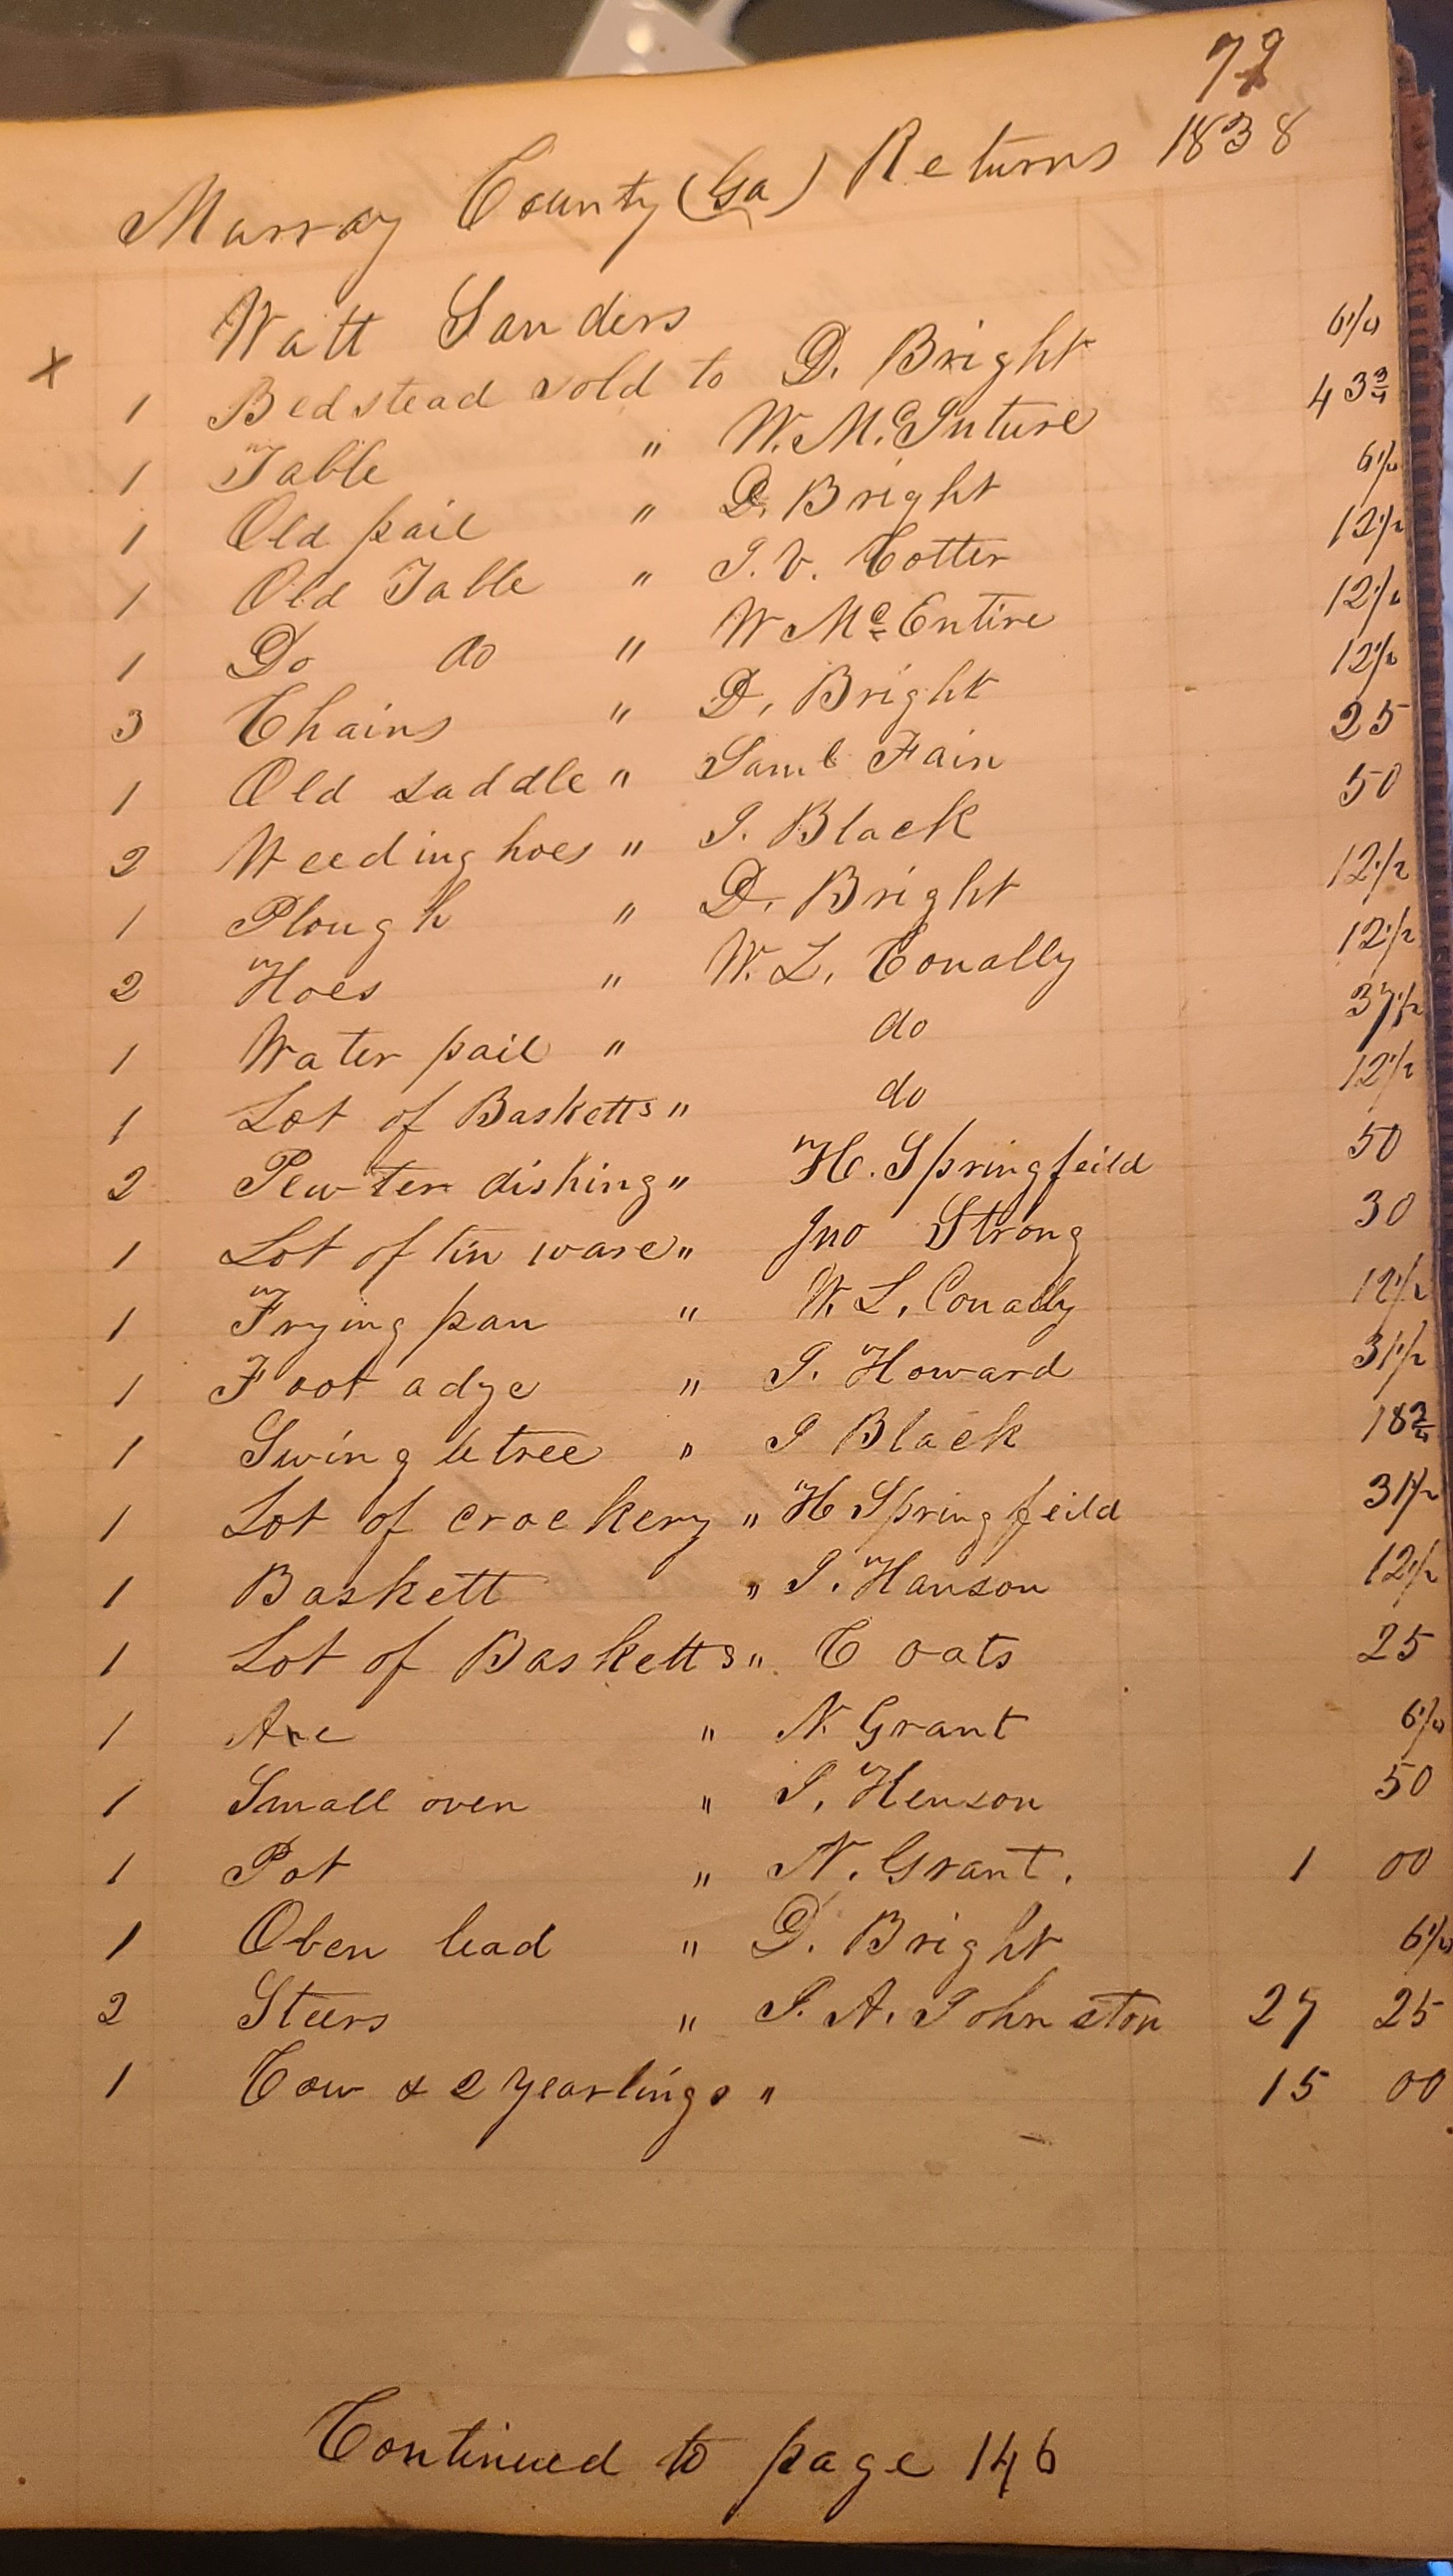 72
Murray County (Ga) Returns 1838
Watt Sanders
x 1 Bedstead sold to D. Bright 6 1/4
1 Table " W. M. Inture 43 3/4
1 Old pail " D. Bright 6 1/4
1 Old Table " J. V. Cotter 12 1/2
1 Do do " W McEntire 12 1/2
3 Chains " D. Bright 12 1/2
1 Old saddle " Saml Fain 25
2 Weeding hoes " J. Black 50
1 Plough " D. Bright 12 1/2
2 Hoes " W. L. Conally 12 1/2
1 Water pail " do 37 1/2
1 Lot of Basketts " do 12 1/2
2 Pewter dishing " H. Springfeild 50
1 Lot of tin ware " Jno Strong 30
1 Frying pan " W. L. Conally 12 1/2
1 Foot adze " J. Howard 31 1/2
1 Swingletree " J Black 18 3/4
1 Lot of crockery " H Springfeild 31 1/2
1 Baskett " J. Hanson 12 1/2
1 Lot of Basketts " Coats 25
1 Axe " N. Grant 6 1/4
1 Small oven " J. Henson 50
1 Pot " N. Grant. 1 00
1 Oben lead " D. Bright 6 1/4
2 Steers " J. A. Johnston 27 25
1 Cow & 2 yearlings " 15 00
Continued to page 146